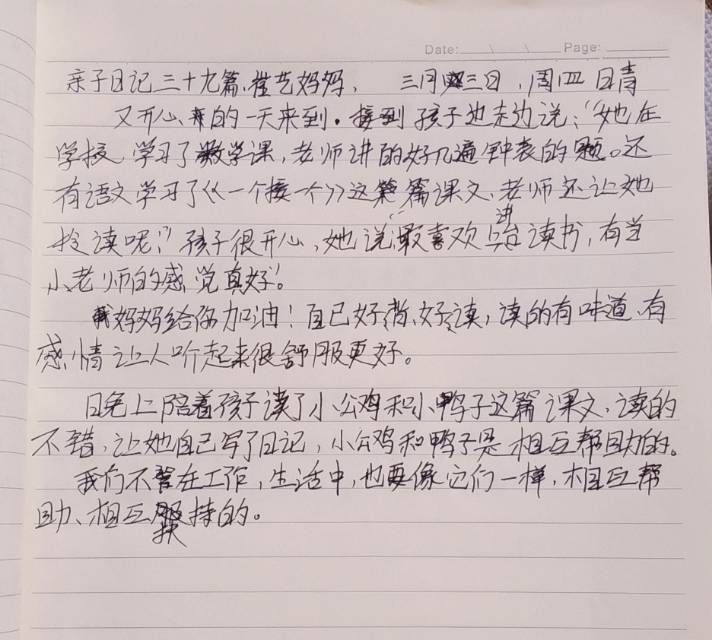 Date: \ \ Page:
亲子日记三十九篇、崔艺妈妈、 三月三日,周四 日晴
又开心的一天来到。接到孩子边走边说:“她在
学校学习了数学课,老师讲的好几遍钟表的题。还
有语文学习了《一个接一个》这篇课文、老师还让她
拎读呢,”孩子很开心,她说“最喜欢上讲台读书,有当
小老师的感觉真好”。
妈妈给你加油!自己好背、好读,读的有味道、有
感情让人听起来很舒服更好。
日晚上陪着孩子读了小公鸡和小鸭子这篇课文、读的
不错,让她自己写了日记,小公鸡和鸭子是相互帮助的。
我们不管在工作,生活中,也要像它们一样,相互帮
助、相互扶持的。